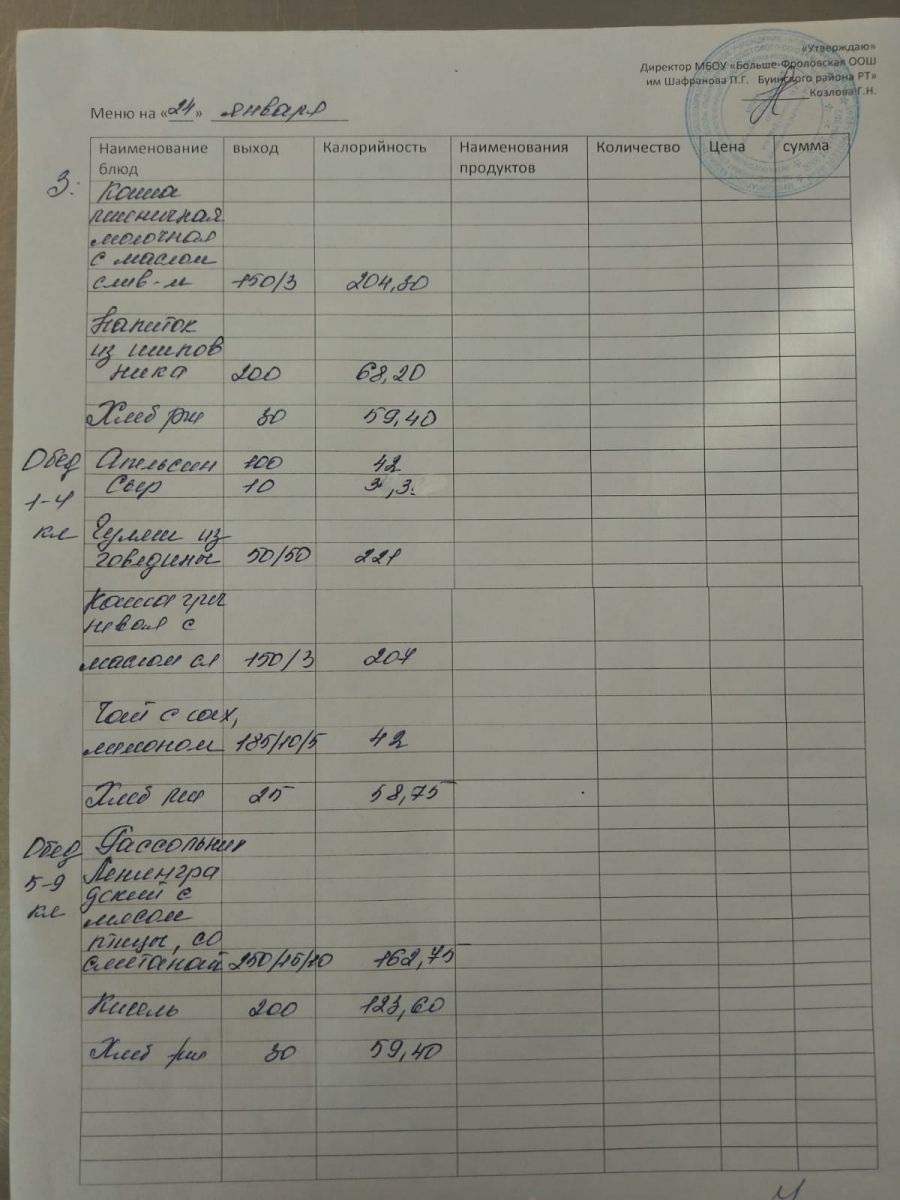 «Утверждаю»
Директор МБОУ «Больше-Фроловская ООШ
им Шафранова П.Г. Буинского района РТ»
Козлова Г.Н.
Меню на «24» января
Наименование блюд выход Калорийность Наименования продуктов Количество Цена сумма
З: Каша
пшеничная
молочная
с маслом
слив-м 150/3 204,30
Напиток
из шипов
ника 200 68,20
Хлеб рж 30 59,40
Обед Апельсин 100 42
1-4 Сыр 10
кл Гуляш из
говядины 50/50 221
Каша греч
невая с
маслом сл 150/3 207
Чай с сах,
лимоном 185/10/5 42
Хлеб рж 25 58,75
Обед Рассольник
5-9 Ленингра
кл дский с
мясом
птицы, со
сметаной 250/15/10 162,75
Кисель 200 123,60
Хлеб рж 30 59,40